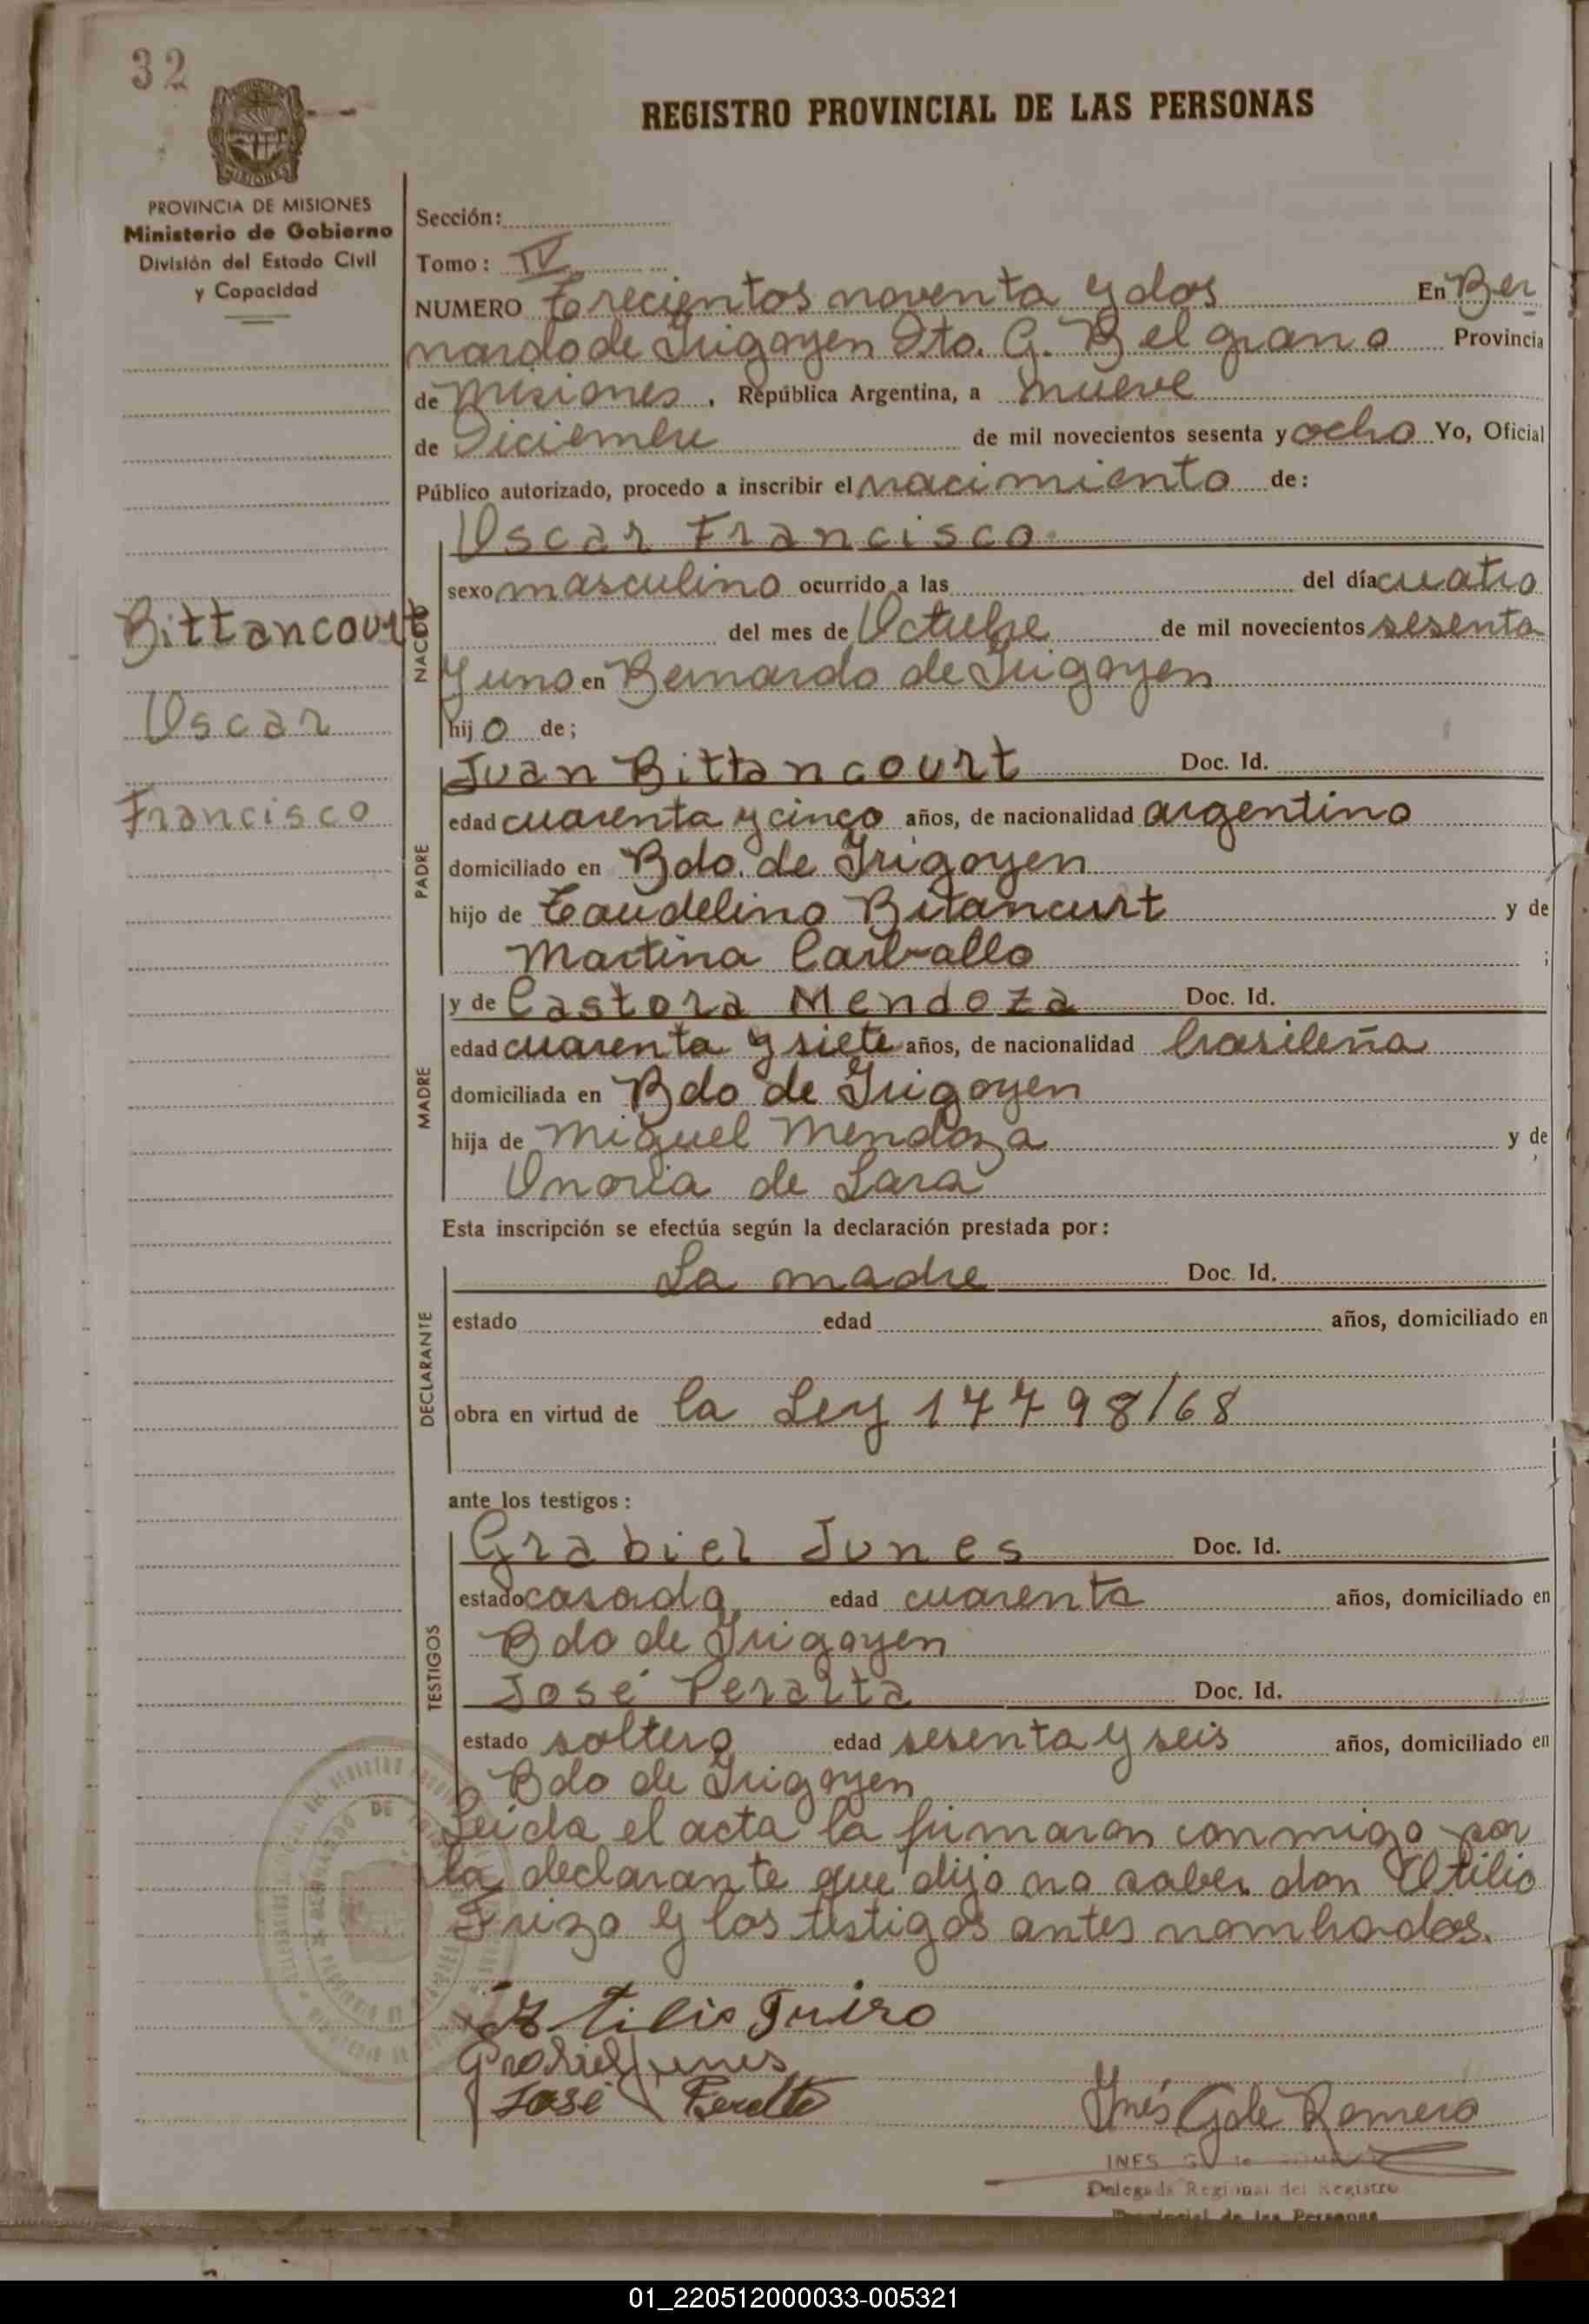 32
REGISTRO PROVINCIAL DE LAS PERSONAS
MISIONES
PROVINCIA DE MISIONES
Ministerio de Gobierno
División del Estado Civil
y Capacidad
Bittancourt
Oscar
Francisco
Sección:
Tomo: IV
NUMERO Trecientos noventa y dos En Ber
nardo de Irigoyen Dto. G. Belgrano Provincia
de Misiones, República Argentina, a nueve
de Diciembre de mil novecientos sesenta y ocho Yo, Oficial
Público autorizado, procedo a inscribir el nacimiento de:
NACIDO
Oscar Francisco
sexo masculino ocurrido a las del día cuatro
del mes de Octubre de mil novecientos sesenta
y uno en Bernardo de Irigoyen
hijo de;
PADRE
Juan Bittancourt Doc. Id.
edad cuarenta y cinco años, de nacionalidad argentino
domiciliado en Bdo. de Irigoyen
hijo de Taudelino Bitancurt y de
Martina Carballo ;
MADRE
y de Castora Mendoza Doc. Id.
edad cuarenta y siete años, de nacionalidad brasileña
domiciliada en Bdo de Irigoyen
hija de Miguel Mendoza y de
Onoria de Lara ;
Esta inscripción se efectúa según la declaración prestada por:
DECLARANTE
La madre Doc. Id.
estado edad años, domiciliado en
obra en virtud de la Ley 17798/68
ante los testigos:
TESTIGOS
Grabiel Junes Doc. Id.
estado casado edad cuarenta años, domiciliado en
Bdo de Irigoyen
José Peralta Doc. Id.
estado soltero edad sesenta y seis años, domiciliado en
Bdo de Irigoyen
Leida el acta la firmaron conmigo por
la declarante que dijo no saber don Otilio
Frizo y los testigos antes nombrados.
Grabiel Junes
José Peralta
Inés Gole Romero
INES
Delegada Regional del Registro
Provincial de las Personas
01_220512000033-005321